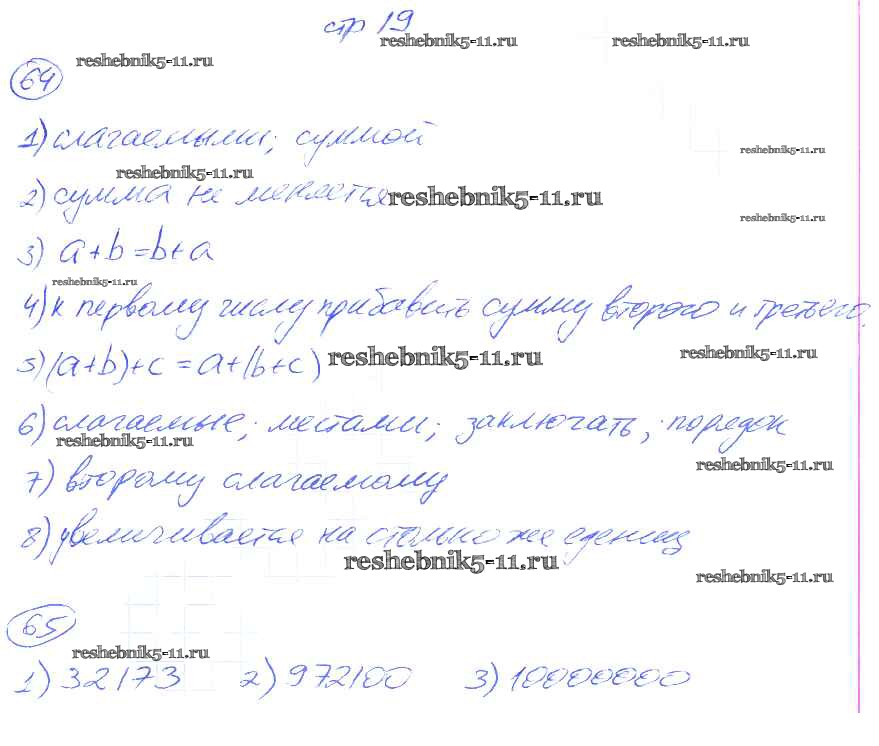 стр 19
reshebnik5-11.ru reshebnik5-11.ru
reshebnik5-11.ru
64
1) слагаемыми; суммой
reshebnik5-11.ru
reshebnik5-11.ru
2) сумма не меняется reshebnik5-11.ru
reshebnik5-11.ru
3) a+b=b+a
reshebnik5-11.ru
4) к первому числу прибавить сумму второго и третьего.
5) (a+b)+c=a+(b+c) reshebnik5-11.ru reshebnik5-11.ru
6) слагаемые; местами; заключать; порядок
reshebnik5-11.ru
reshebnik5-11.ru
7) второму слагаемому
8) увеличивается на столько же едениц
reshebnik5-11.ru
reshebnik5-11.ru
65
reshebnik5-11.ru
1) 32173 2) 972100 3) 10000000